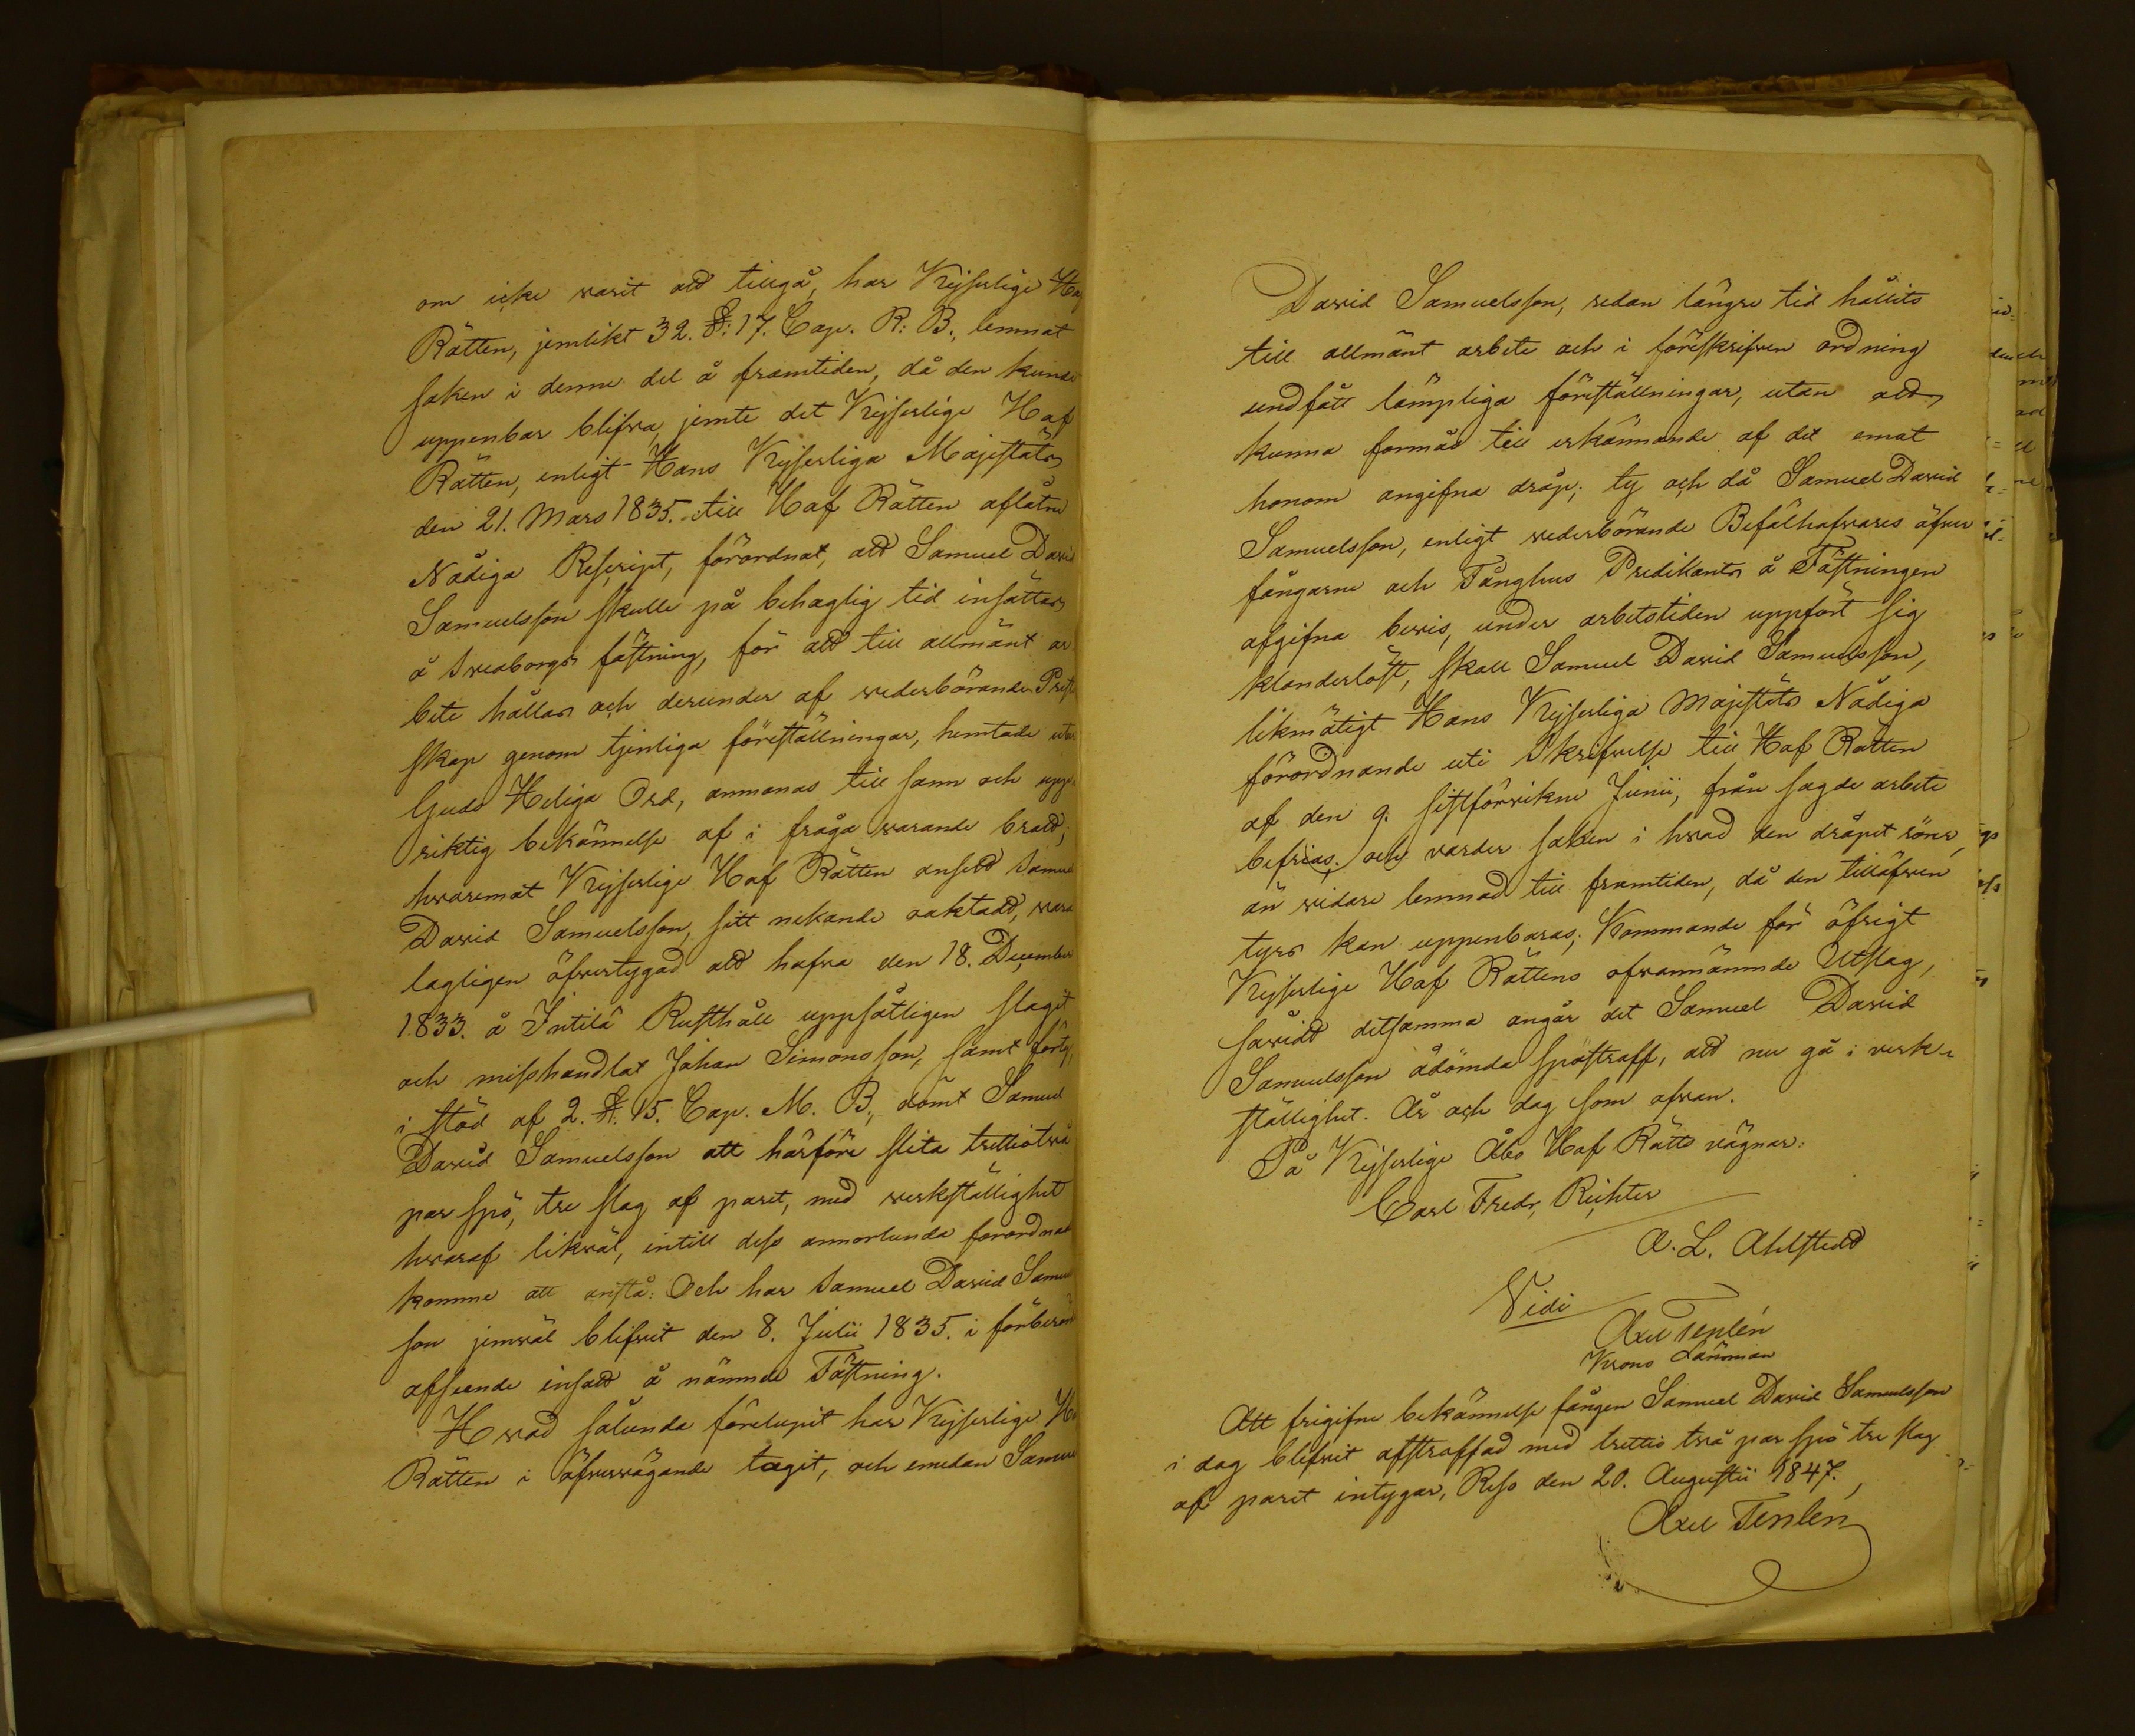 om icke varit att tillgå, har Kejserlige Hof
Rätten, jemlikt 32. §: 17. Cap. R: B., lemnat
saken i denne del å framtiden, då den kunde
uppenbar blifva, jemte det Kejserlige Hof
Rätten, enligt Hans Kejserliga Majestäts
den 21. Mars 1835. till Hof Rätten aflåtne
Nådiga Rescript, förordnat, att Samuel David
Samuelsson skulle på behaglig tid insättas
å Sveaborgs fästning, för att till allmänt ar-
bete hållas och derunder af vederbörande Prest
skap genom tjenliga föreställningar, hemtade utur
Guds Heliga Ord, anmanas till sann och upp-
riktig bekännelse af i fråga varande brott;
hvaremot Kejserlige Hof Rätten ansett Samuel
David Samuelsson, sitt nekande oaktadt, vara
lagligen öfvertygad att hafva den 18. December
1833. å Intilä Rusthåll uppsåtligen slagit
och misshandlat Johan Simonsson, samt förty,
i stöd af 2. §. 15. Cap. M. B., dömt Samuel
David Samuelsson att härföre slita trettiotvå
par spö, tre slag af paret, med verkställighet
hvaraf likväl, intill dess annorlunda förordnat
komme att anstå: Och har Samuel David Samuel
son jemväl blifvit den 8. Julii 1835. i förberörd
afseende insatt å nämnde Fästning.
Hvad sålunda förelupit har Kejserlige Hof
Rätten i öfvervägande tagit, och emedan Samuel
David Samuelsson, redan längre tid hållits
till allmänt arbete och i föreskrifven ordning
undfått lämpliga föreställningar, utan att
kunna förmås till erkännande af det emot
honom angifna dråp; ty och då Samuel David
Samuelsson, enligt vederbörande Befälhafvares öfver
fångarne och Fånghus Predikants å Fästningen
afgifna bevis, under arbetstiden uppfört sig
klanderlöst, skall Samuel David Samuelsson,
likmätigt Hans Kejserliga Majestäts Nådiga
förordnande uti Skrifvelse till Hof Rätten
af den 9. sistförvikne Junii, från sagde arbete
befrias; och varder saken i hvad den dråpet rörer,
än vidare lemnad till framtiden, då den tilläfven-
tyrs kan uppenbaras; Kommande för öfrigt
Kejserlige Hof Rättens ofvannämnde Utslag,
såvidt detsamma angår det Samuel David
Samuelsson ådömda spöstraff, att nu gå i verk-
ställighet. År och dag som ofvan.
På Kejserlige Åbo Hof Rätts vägnar:
Carl Fredr, Richter
A. L. Ahlstedt
Vidi
Axel Tenlén
Krono Länsman
Att frigifne bekännelse fången Samuel David Samuelsson
i dag blifvit afstraffad med trettio två par spö tre slag
af paret intygar, Reso den 20. Augustii 1847.
Axel Tenlén